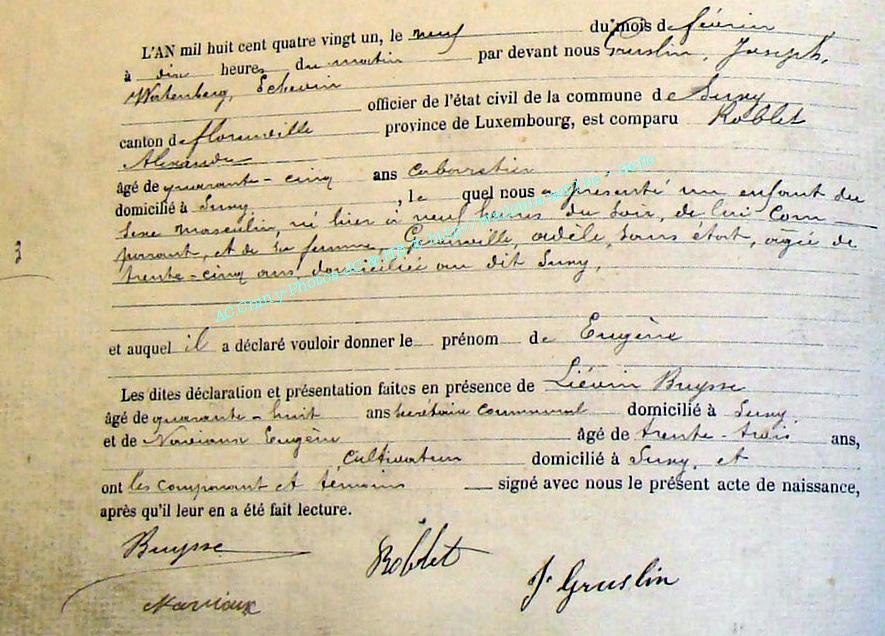 L'AN mil huit cent quatre vingt un, le neuf du mois de février
à dix heures du matin par devant nous Gruslin, Joseph,
Echevin
officier de l'état civil de la commune de Suxy
canton de florenville province de Luxembourg, est comparu Roblet
Alexandre
âgé de quarante-cinq ans cabaretier
domicilié à Suxy, le quel nous a présenté un enfant du
sexe masculin, né hier à neuf heures du soir, de lui com
parant, et de sa femme, adèle, sans état, agée de
trente-cinq ans, domiciliée au dit Suxy,
et auquel il a déclaré vouloir donner le prénom de Eugène
Les dites déclaration et présentation faites en présence de Liévin Buysse
âgé de quarante-huit ans secrétaire communal domicilié à Suxy
et de Eugène âgé de trente-trois ans,
cultivateur domicilié à Suxy, et
ont les comparant et témoins signé avec nous le présent acte de naissance,
après qu'il leur en a été fait lecture.
Buysse Roblet J. Gruslin
3